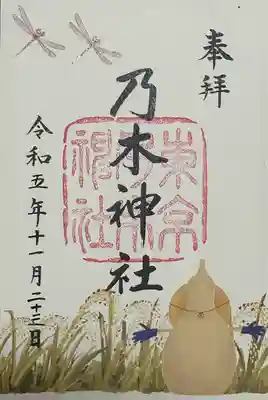 奉拝
乃木神社
東京乃木神社
令和五年十一月二十三日